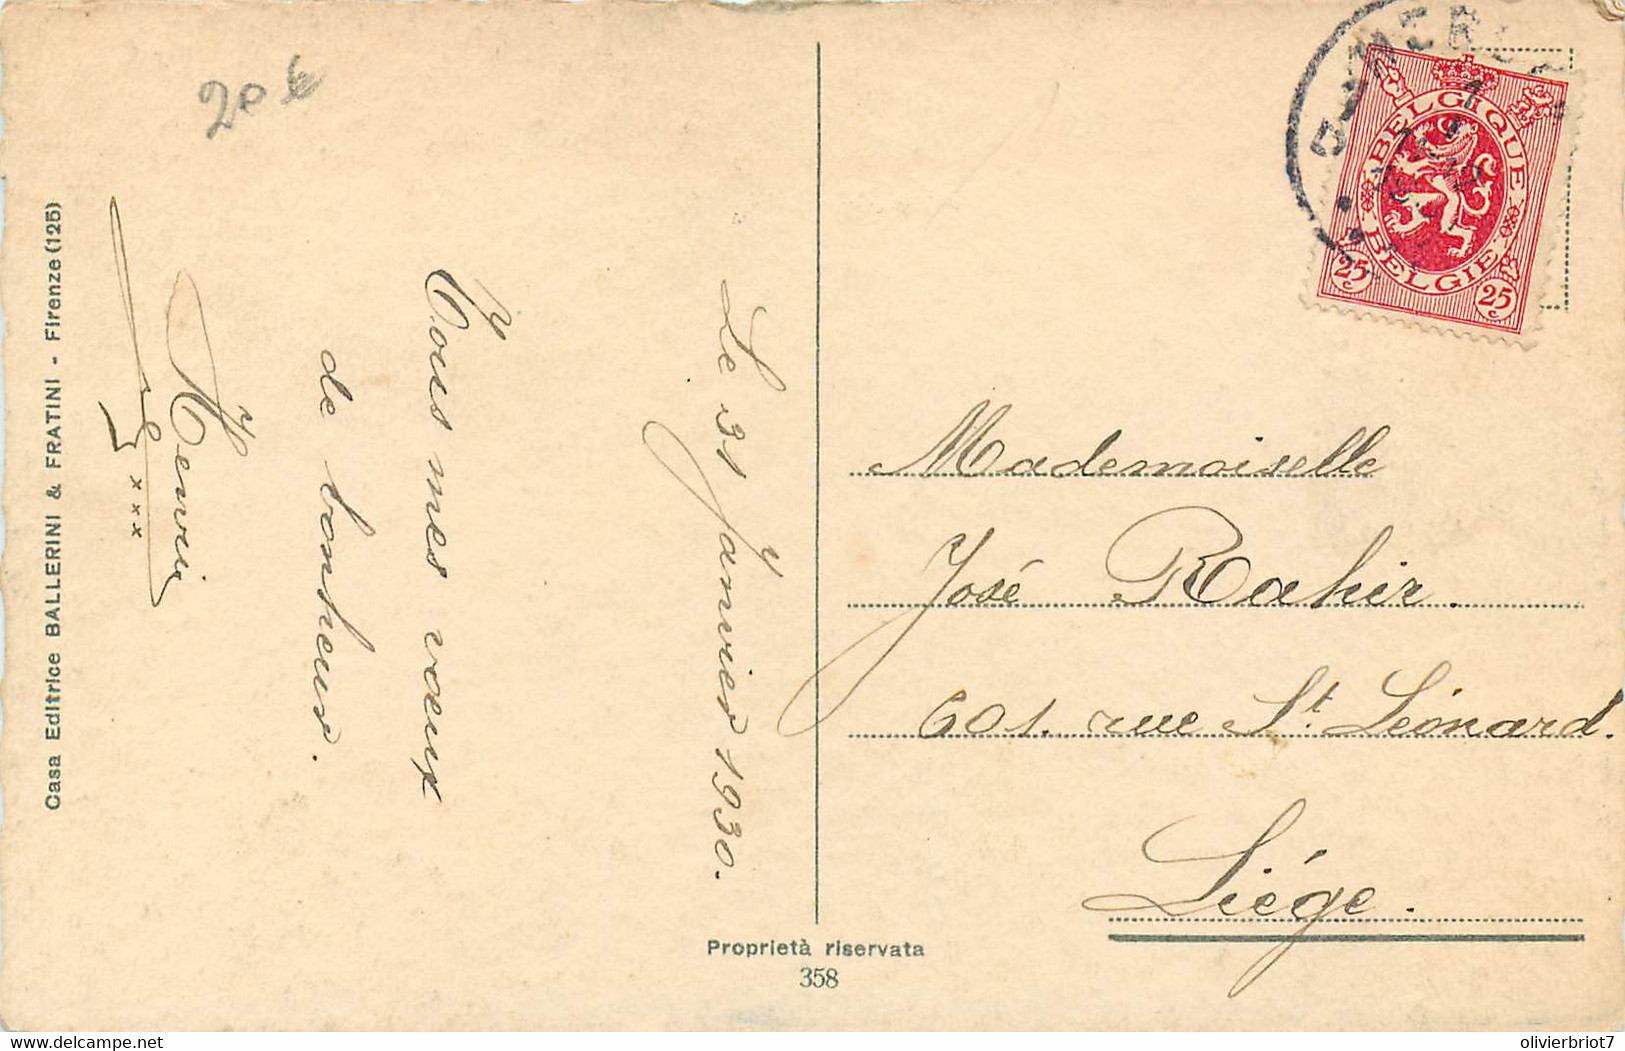 20 €
Casa Editrice BALLERINI & FRATINI - Firenze (125)
Le 31 Janvier 1930.
Tous mes vœux
de bonheur.
Henri
BELGIQUE
BELGIË
25 c
25 c
Mademoiselle
José Rahir.
601. rue St. Léonard.
Liége.
Proprietà riservata
358
delcampe.net
olivierbriot7